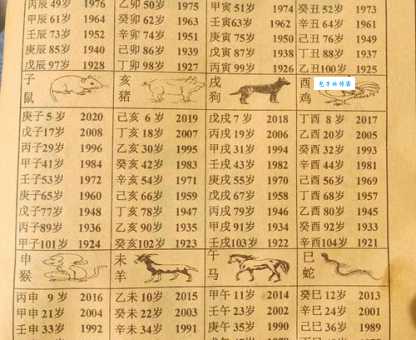 丙辰49岁 1976 乙卯50岁 1975 甲寅51岁 1974 癸丑52岁 1973
甲辰61岁 1964 癸卯62岁 1963 壬寅63岁 1962 辛丑64岁 1961
壬辰73岁 1952 辛卯74岁 1951 庚寅75岁 1950 己丑76岁 1949
庚辰85岁 1940 己卯86岁 1939 戊寅87岁 1938 丁丑88岁 1937
戊辰97岁 1928 丁卯98岁 1927 丙寅99岁 1926 乙丑100岁 1925
子鼠 亥猪 戌狗 酉鸡
庚子 5岁 2020 己亥 6岁 2019 戊戌 7岁 2018 丁酉 8岁 2017
戊子17岁 2008 丁亥18岁 2007 丙戌19岁 2006 乙酉20岁 2005
丙子29岁 1996 乙亥30岁 1995 甲戌31岁 1994 癸酉32岁 1993
甲子41岁 1984 癸亥42岁 1983 壬戌43岁 1982 辛酉44岁 1981
壬子53岁 1972 辛亥54岁 1971 庚戌55岁 1970 己酉56岁 1969
庚子65岁 1960 己亥66岁 1959 戊戌67岁 1958 丁酉68岁 1957
戊子77岁 1948 丁亥78岁 1947 丙戌79岁 1946 乙酉80岁 1945
丙子89岁 1936 乙亥90岁 1935 甲戌91岁 1934 癸酉92岁 1933
甲子101岁 1924 癸亥102岁 1923 壬戌103岁 1922 辛酉104岁 1921
申猴 未羊 午马 巳蛇
丙申 9岁 2016 乙未10岁 2015 甲午11岁 2014 癸巳12岁 2013
甲申21岁 2004 癸未22岁 2003 壬午23岁 2002 辛巳24岁 2001
壬申33岁 1992 辛未34岁 1991 庚午35岁 1990 己巳36岁 1989